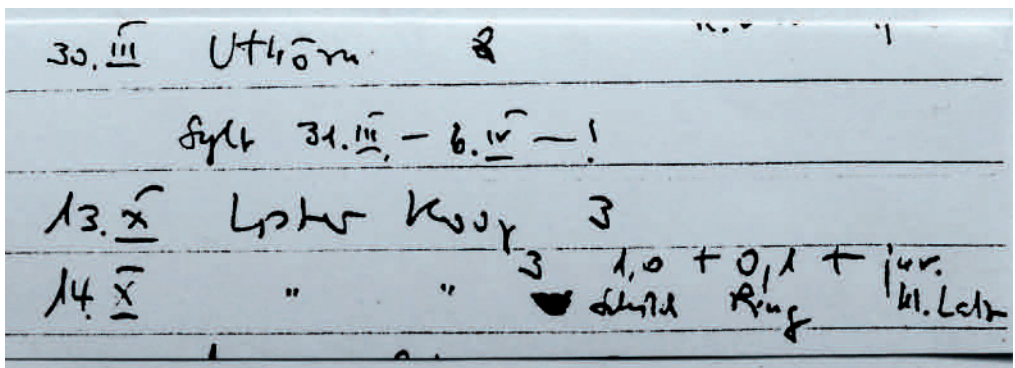 30.III Uthörn 2
Sylt 31.III. – 6.IV – !
13.X Lister Koog 3
14.X " " 3 1,0 + 0,1 + juv.
Schild Ring kl. Latz